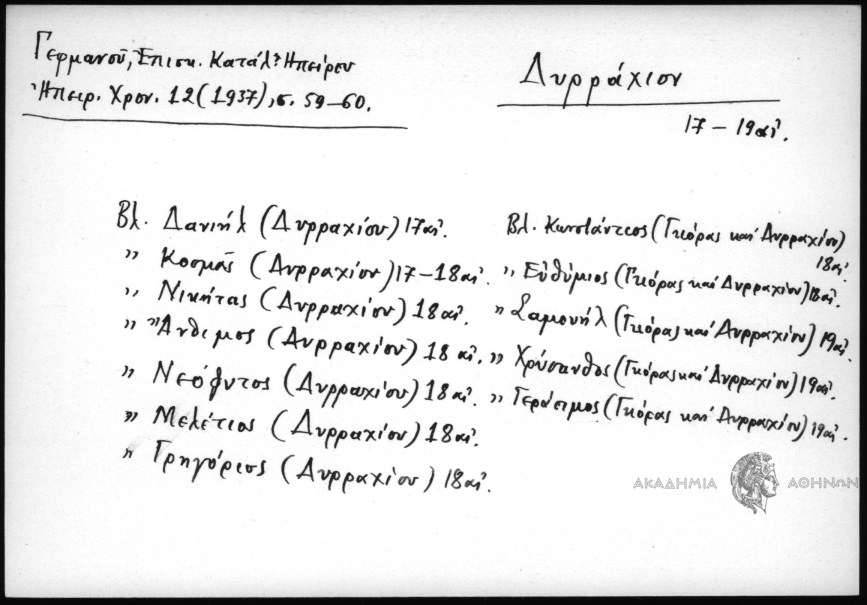 Γερμανοῦ, Ἐπισκ. Κατάλ. Ἠπείρου
Ἠπειρ. Χρον. 12 (1937), σ. 59-60.
Δυρράχιον
17 – 19 αἰ.
Βλ. Δανιήλ (Δυρραχίου) 17 αἰ.
〃 Κοσμάς (Δυρραχίου) 17-18 αἰ.
〃 Νικήτας (Δυρραχίου) 18 αἰ.
〃 Ἄνθιμος (Δυρραχίου) 18 αἰ.
〃 Νεόφυτος (Δυρραχίου) 18 αἰ.
〃 Μελέτιος (Δυρραχίου) 18 αἰ.
〃 Γρηγόριος (Δυρραχίου) 18 αἰ.
Βλ. Κωνστάντιος (Γκόρας καὶ Δυρραχίου)
18 αἰ.
〃 Εὐθύμιος (Γκόρας καὶ Δυρραχίου) 18 αἰ.
〃 Σαμουήλ (Γκόρας καὶ Δυρραχίου) 19 αἰ.
〃 Χρύσανθος (Γκόρας καὶ Δυρραχίου) 19 αἰ.
〃 Γεράσιμος (Γκόρας καὶ Δυρραχίου) 19 αἰ.
ΑΚΑΔΗΜΙΑ ΑΘΗΝΩΝ